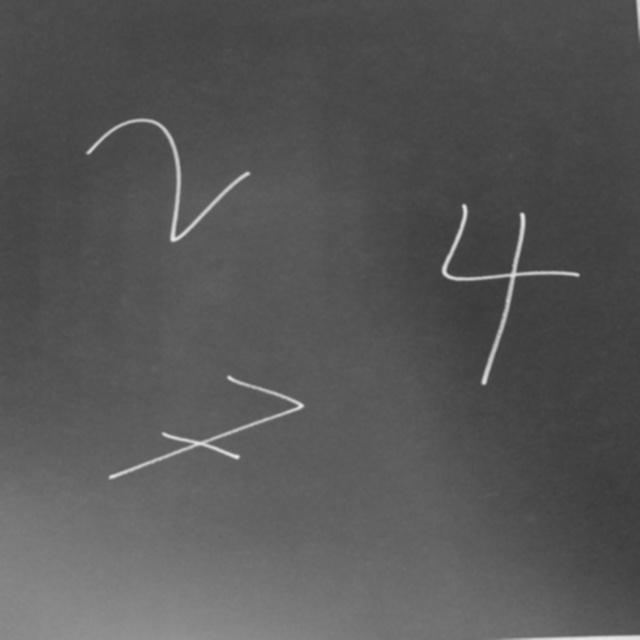 2
4
7